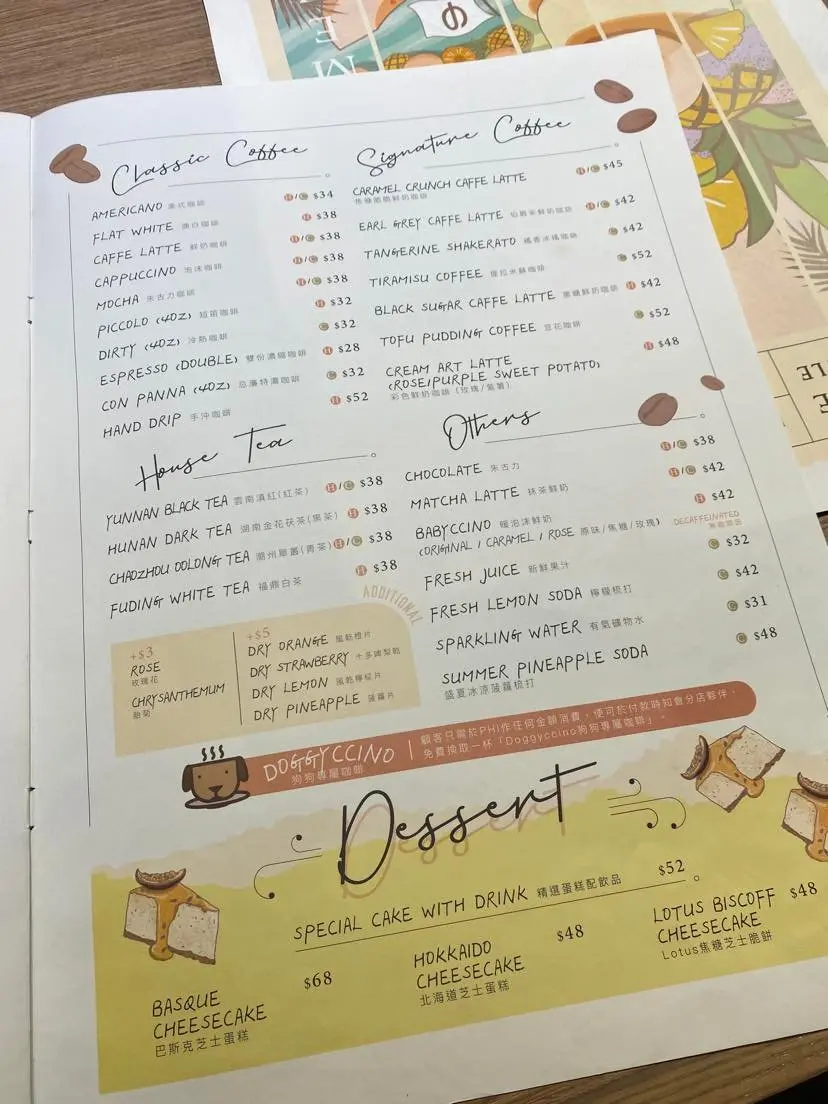 Classic Coffee
AMERICANO 美式咖啡 H/C $34
FLAT WHITE 澳白咖啡 H $38
CAFFE LATTE 鮮奶咖啡 H/C $38
CAPPUCCINO 泡沫咖啡 H/C $38
MOCHA 朱古力咖啡 H/C $38
PICCOLO (4OZ) 短笛咖啡 H $32
DIRTY (4OZ) 冷熱咖啡 C $32
ESPRESSO (DOUBLE) 雙份濃縮咖啡 H $28
CON PANNA (4OZ) 忌廉特濃咖啡 C $32
HAND DRIP 手沖咖啡 H $52
Signature Coffee
CARAMEL CRUNCH CAFFE LATTE H/C $45
焦糖脆脆鮮奶咖啡
EARL GREY CAFFE LATTE 伯爵茶鮮奶咖啡 H/C $42
TANGERINE SHAKERATO 橘香冰搖咖啡 C $42
TIRAMISU COFFEE 提拉米穌咖啡 C $52
BLACK SUGAR CAFFE LATTE 黑糖鮮奶咖啡 H $42
TOFU PUDDING COFFEE 豆花咖啡 C $52
CREAM ART LATTE H $48
(ROSE/PURPLE SWEET POTATO)
彩色鮮奶咖啡 (玫瑰/紫薯)
House Tea
YUNNAN BLACK TEA 雲南滇紅(紅茶) H/C $38
HUNAN DARK TEA 湖南金花茯茶(黑茶) H $38
CHAOZHOU OOLONG TEA 潮州單叢(青茶) H/C $38
FUDING WHITE TEA 福鼎白茶 H $38
ADDITIONAL
+$3
ROSE
玫瑰花
CHRYSANTHEMUM
胎菊
+$5
DRY ORANGE 風乾橙片
DRY STRAWBERRY 士多啤梨乾
DRY LEMON 風乾檸檬片
DRY PINEAPPLE 菠蘿片
Others
CHOCOLATE 朱古力 H/C $38
MATCHA LATTE 抹茶鮮奶 H/C $42
BABYCCINO 暖泡沫鮮奶 H $42
(ORIGINAL / CARAMEL / ROSE 原味/焦糖/玫瑰) DECAFFEINATED
無咖啡因
FRESH JUICE 新鮮果汁 C $32
FRESH LEMON SODA 檸檬梳打 C $42
SPARKLING WATER 有氣礦物水 C $31
SUMMER PINEAPPLE SODA C $48
盛夏冰涼菠蘿梳打
DOGGYCCINO
狗狗專屬咖啡
顧客只需於PHI作任何金額消費,便可於付款時知會分店夥伴,
免費換取一杯「Doggyccino狗狗專屬咖啡」。
Dessert
SPECIAL CAKE WITH DRINK 精選蛋糕配飲品 $52
BASQUE $68
CHEESECAKE
巴斯克芝士蛋糕
HOKKAIDO $48
CHEESECAKE
北海道芝士蛋糕
LOTUS BISCOFF $48
CHEESECAKE
Lotus焦糖芝士脆餅
の